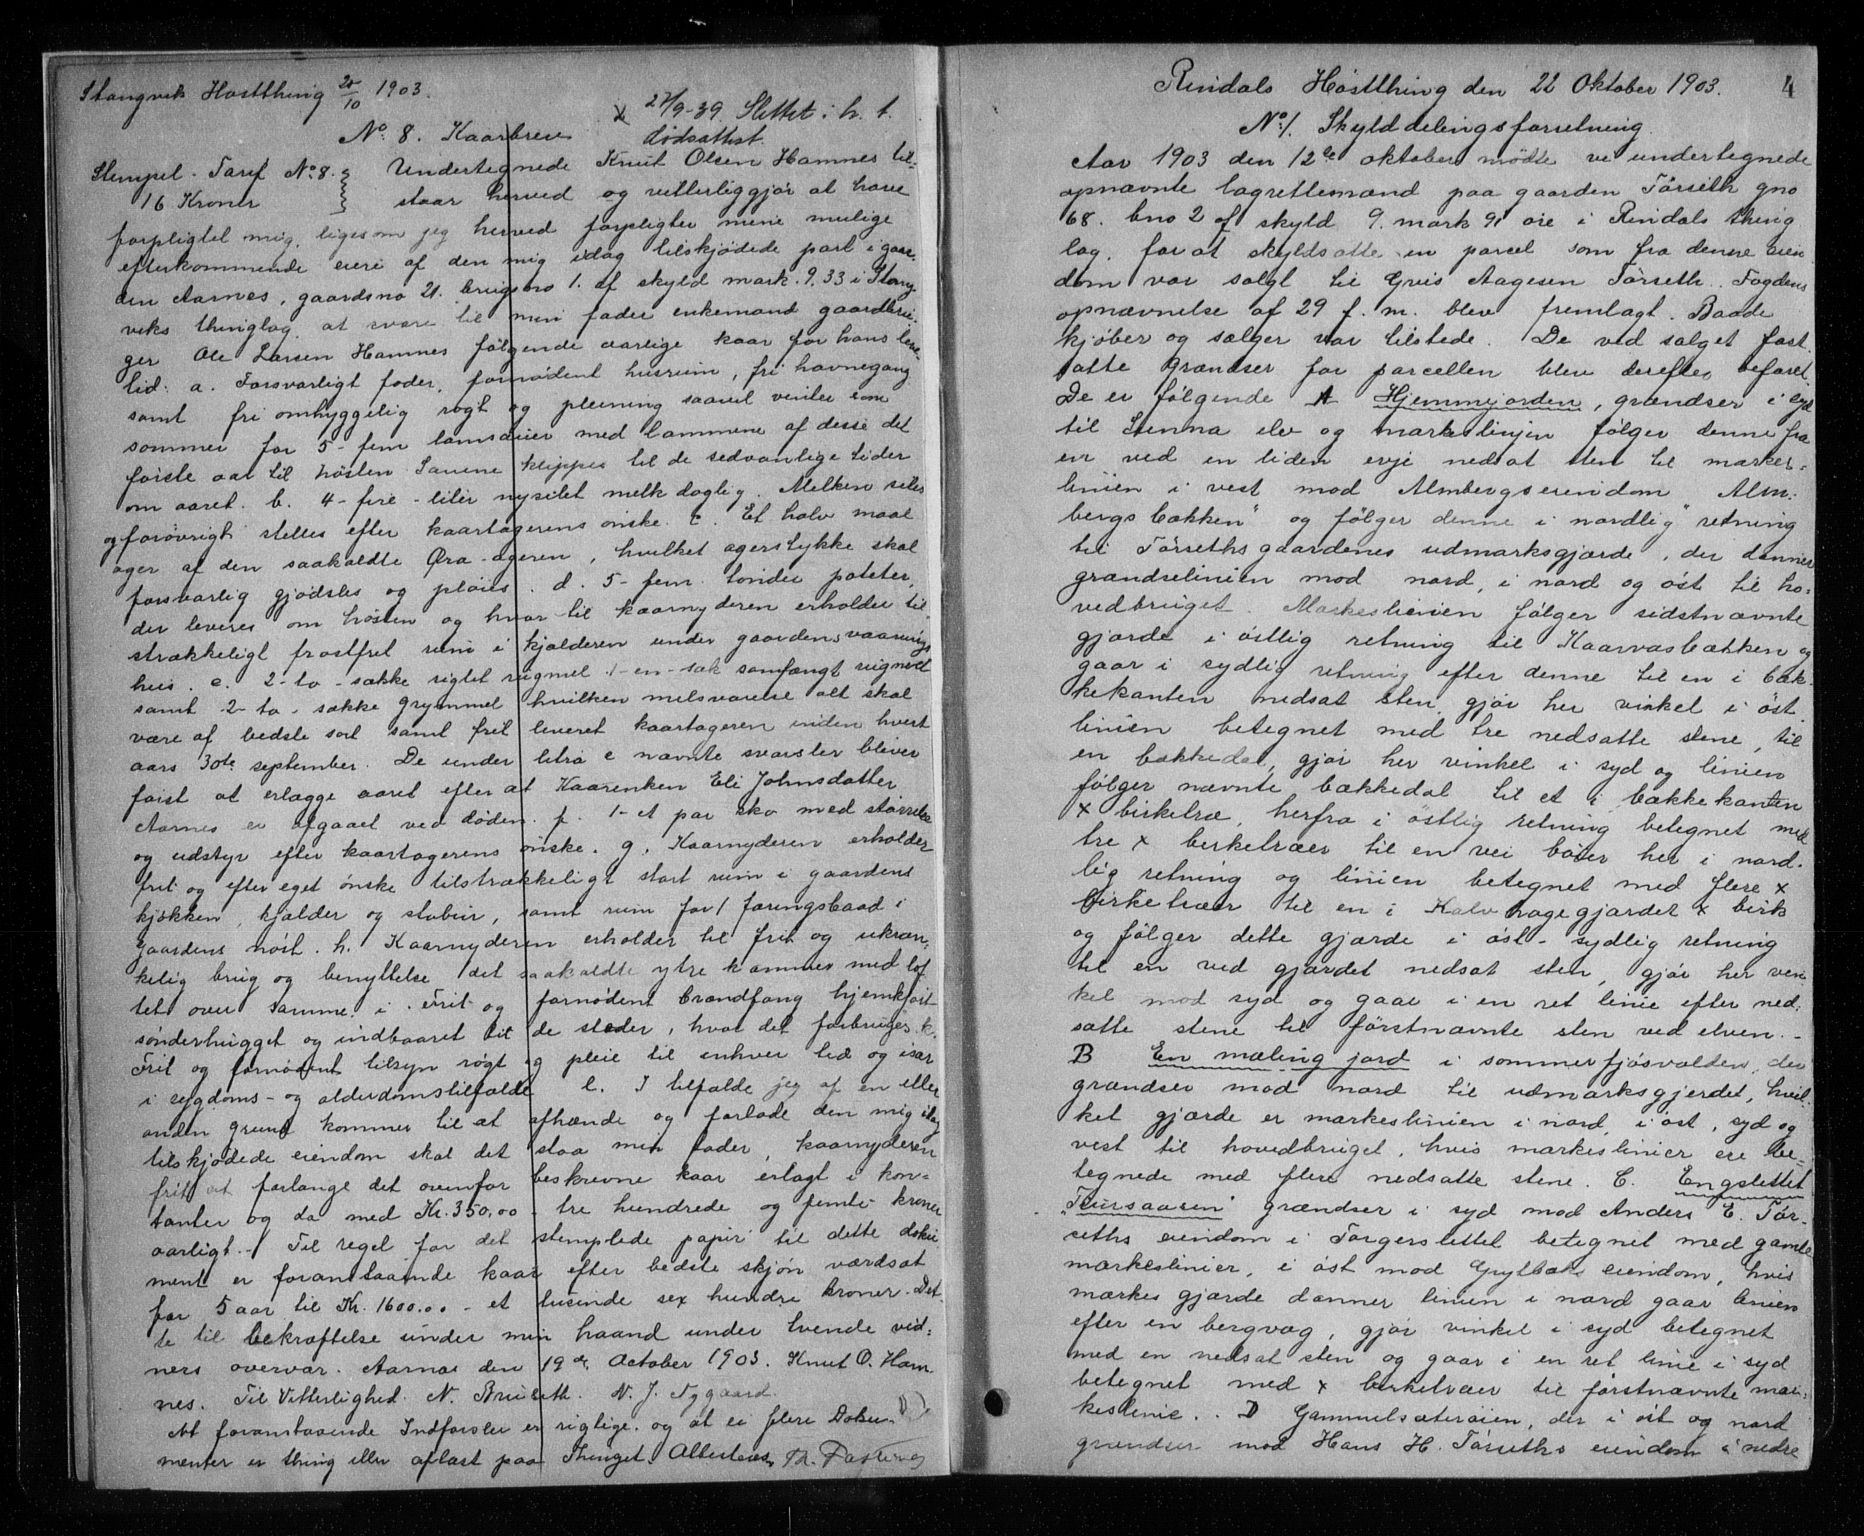 Stangvik Høstthing 20/10 1903.
x 27/9-39 Slettet i h. t.
dødsattest.
No. 8. Kaarbrev
Stempel-Tarif No. 8. Undertegnede Knut Olsen Hamnes til-
16 Kroner staar herved og vitterliggjør at have
forpligtet mig, ligesom jeg herved forpligter mine mulige
efterkommende eiere af den mig idag tilskjødede part i gaar-
den Aarnes, gaardsno 21. brugsno 1. af skyld mark. 9,33 i Stang-
viks thinglag, at svare til min fader enkemand gaardbru-
ger Ole Larsen Hamnes følgende aarlige kaar for hans leve-
tid: a. Forsvarligt foder, fornødent husrum, fri havnegang
samt fri omhyggelig røgt og pleining saavel vinter som
sommer for 5-fem lamsauer med lammene af disse det
første aar til høsten. Sauene klippes til de sedvanlige tider
om aaret. b. 4-fire-liter nysilet melk daglig. Melken siles
og forøvrigt stelles efter kaartagerens ønske. c. Et halv maal
ager af den saakaldte Øra-ageren, hvilket agerstykke skal
forsvarlig gjødsles og pløies. d. 5-fem tønder poteter,
der leveres om høsten og hvortil kaarnyderen erholder til-
strækkeligt frostfrit rum i kjælderen under gaardens vaanings-
hus. e. 2-to-sække sigtet rugmel 1-en-sæk samfængt rugmel
samt 2-to-sække grynmel hvilken melsvarelse alt skal
være af bedste sort samt frit leveret kaartageren inden hvert
aars 30te september. De under litra e nævnte svarsler bliver
først at erlægge aaret efter at Kaarenken Eli Johnsdatter
Aarnes er afgaaet ved døden. f. 1-et par sko med størrelse
og udstyr efter kaartagerens ønske. g. Kaarnyderen erholder
frit og efter eget ønske tilstrækkeligt stort rum i gaardens
kjøkken, kjælder og stabur, samt rum for 1 færingsbaad i
Gaardens nøst. h. Kaarnyderen erholder til frit og ukræn-
kelig brug og benyttelse det saakaldte ytre kammer med lof-
tet over samme. i Frit og fornødent brændfang hjemkjørt
sønderhugget og indbaaret til de steder, hvor det forbruges. k.
Frit og fornødent tilsyn røgt og pleie til enhver tid og især
i sygdoms- og alderdomstilfælde l. I tilfælde jeg af en eller
anden grund kommer til at afhænde og forlade den mig idag
tilskjødede eiendom skal det staa min fader, kaarnyderen
frit at forlange det ovenfor beskrevne kaar erlagt i kon-
tanter og da med Kr. 350,00 - tre hundrede og femti kroner
aarligt.- Til regel for det stemplede papir til dette doku-
ment er foranstaaende kaar efter bedste skjøn værdsat
for 5 aar til Kr. 1600.00 - et tusinde sex hundre kroner. Det-
te til bekræftelse under min haand under tvende vid-
ners overvær. Aarnæs den 19de October 1903. Knut O. Ham-
nes. Til Vitterlighed. N. Bruseth. N. J. Nygaard.
At foranstaaende Indførsler er rigtige, og at ei flere Doku-
menter er thing eller aflæst paa Thinget Attesteres
Rindals Høstthing den 22 Oktober 1903. 4
No 1. Skylddelingsforretning.
Aar 1903 den 12te oktober mødte vi undertegnede
opnævnte lagrettemænd paa gaarden Tørseth gno
68. bno 2 af skyld 9. mark 91 øre i Rindals thing
lag, for at skyldsætte en parcel som fra denne eien
dom var solgt til Gvis Aagesen Tørseth. Fogdens
opnævnelse af 29 f. m. blev fremlagt. Baade
kjøber og sælger var tilstede. De ved salget fast
satte Grændser for parcellen blev derefter befaret.
De er følgende A Hjemmejorden, grændser i syd
til Lenna elv og markeslinjen følger denne fra
en ved en liden evje nedsat sten til marker-
linien i vest mod Almbergseiendom "Alm-
bergsbækken" og følger denne i nordlig retning
til Tørsethsgaardenes udmarksgjærde, der danner
grændselinien mod nord, i nord og øst til ho-
vedbruget. Markeslinien følger sidstnævnte
gjærde i østlig retning til Kaarvasbækken og
gaar i sydlig retning efter denne til en i bæk-
kekanten nedsat sten, gjør her vinkel i øst
linien betegnet med tre nedsatte stene, til
en bækkedal, gjør her vinkel i syd og linien
følger nævnte bækkedal til et i bækkekanten
x birketræ, herfra i østlig retning betegnet med
tre x birketræer til en vei bøier her i nord-
lig retning og linien betegnet med flere x
birketræer til en i Kalvhagegjærdet x birk
og følger dette gjærde i øst-sydlig retning
til en ved gjærdet nedsat sten, gjør her vin-
kel mod syd og gaar i en ret linie efter ned-
satte stene til førstnævnte sten ved elven.-
B En mæling jord i sommerfjøsvolden, der
grændser mod nord til udmarksgjerdet, hvil-
ket gjærde er markeslinien i nord, i øst, syd og
vest til hovedbruget, hvis markeslinier ere be-
tegnede med flere nedsatte stene. C. Engslettet
"Tuursaasen" grændser i syd mod Anders E. Tør-
seths eiendom i Torgerslettet betegnet med gamle
markeslinier, i øst mod Gryttbaks eiendom, hvis
markesgjærde danner linien i nord gaar linien
efter en bergvæg, gjør vinkel i syd betegnet
med en nedsat sten og gaar i en ret linie i syd
betegnet med x birketræer til førstnævnte mar-
keslinie.. D Gammelsæterøien, der i øst og nord
grændser mod Hans H. Tørseths eiendom i nedre